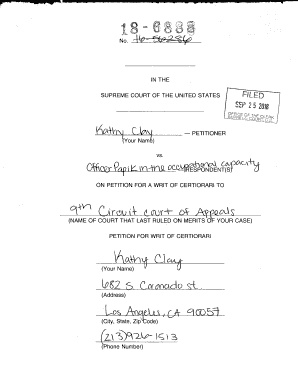 18-6888
No. 16-56286
IN THE
SUPREME COURT OF THE UNITED STATES
FILED
SEP 25 2018
Kathy Clay — PETITIONER
(Your Name)
vs.
Officer Papik in the occupational capacity
RESPONDENT(S)
ON PETITION FOR A WRIT OF CERTIORARI TO
9th Circuit court of Appeals
(NAME OF COURT THAT LAST RULED ON MERITS OF YOUR CASE)
PETITION FOR WRIT OF CERTIORARI
Kathy Clay
(Your Name)
682 S. Coronado st.
(Address)
Los Angeles, CA 90057
(City, State, Zip Code)
(213)926-1513
(Phone Number)